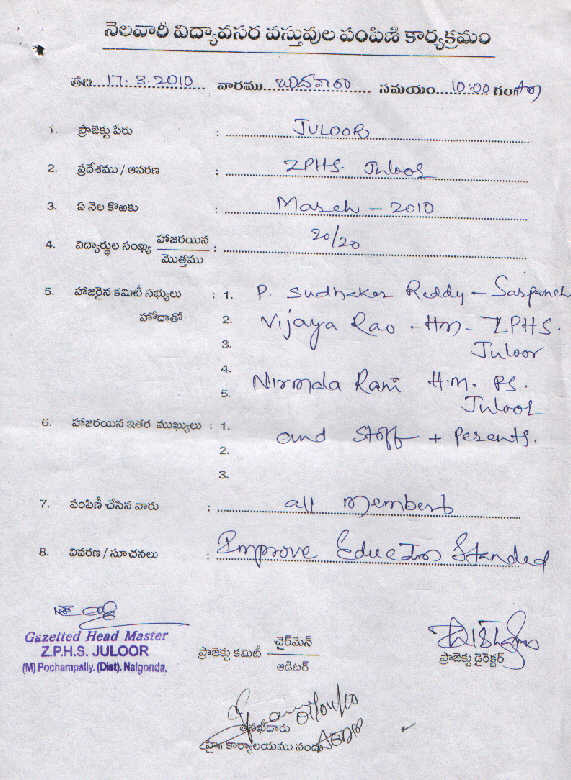 నెలవారీ విద్యావసర వస్తువుల పంపిణి కార్యక్రమం
తేది 17.3.2010 వారము బుధవారం సమయం 10:20 గం
1. ప్రాజెక్టు పేరు : JULOOR
2. ప్రదేశము / ఆవరణ : ZPHS. Juloor
3. ఏ నెల కొఱకు : March - 2010
4. విద్యార్థుల సంఖ్య హాజరయిన / మొత్తము : 20/20
5. హాజరైన కమిటీ సభ్యులు : 1. P. Sudhakar Reddy - Sarpanch
హోదాతో 2. Vijaya Rao - HM - ZPHS.
3. Juloor
4.
5. Nirmala Rani H.M. PS.
Juloor
6. హాజరయిన ఇతర ముఖ్యులు : 1. and Staff + Parents.
2.
3.
7. పంపిణీ చేసిన వారు : all members
8. వివరణ / సూచనలు : Improve Education Standed
Gazetted Head Master
Z.P.H.S. JULOOR
(M) Pochampally. (Dist). Nalgonda.
ప్రాజెక్టు కమిటీ చైర్‌మెన్ / ఆడిటర్
ప్రాజెక్టు డైరెక్టర్